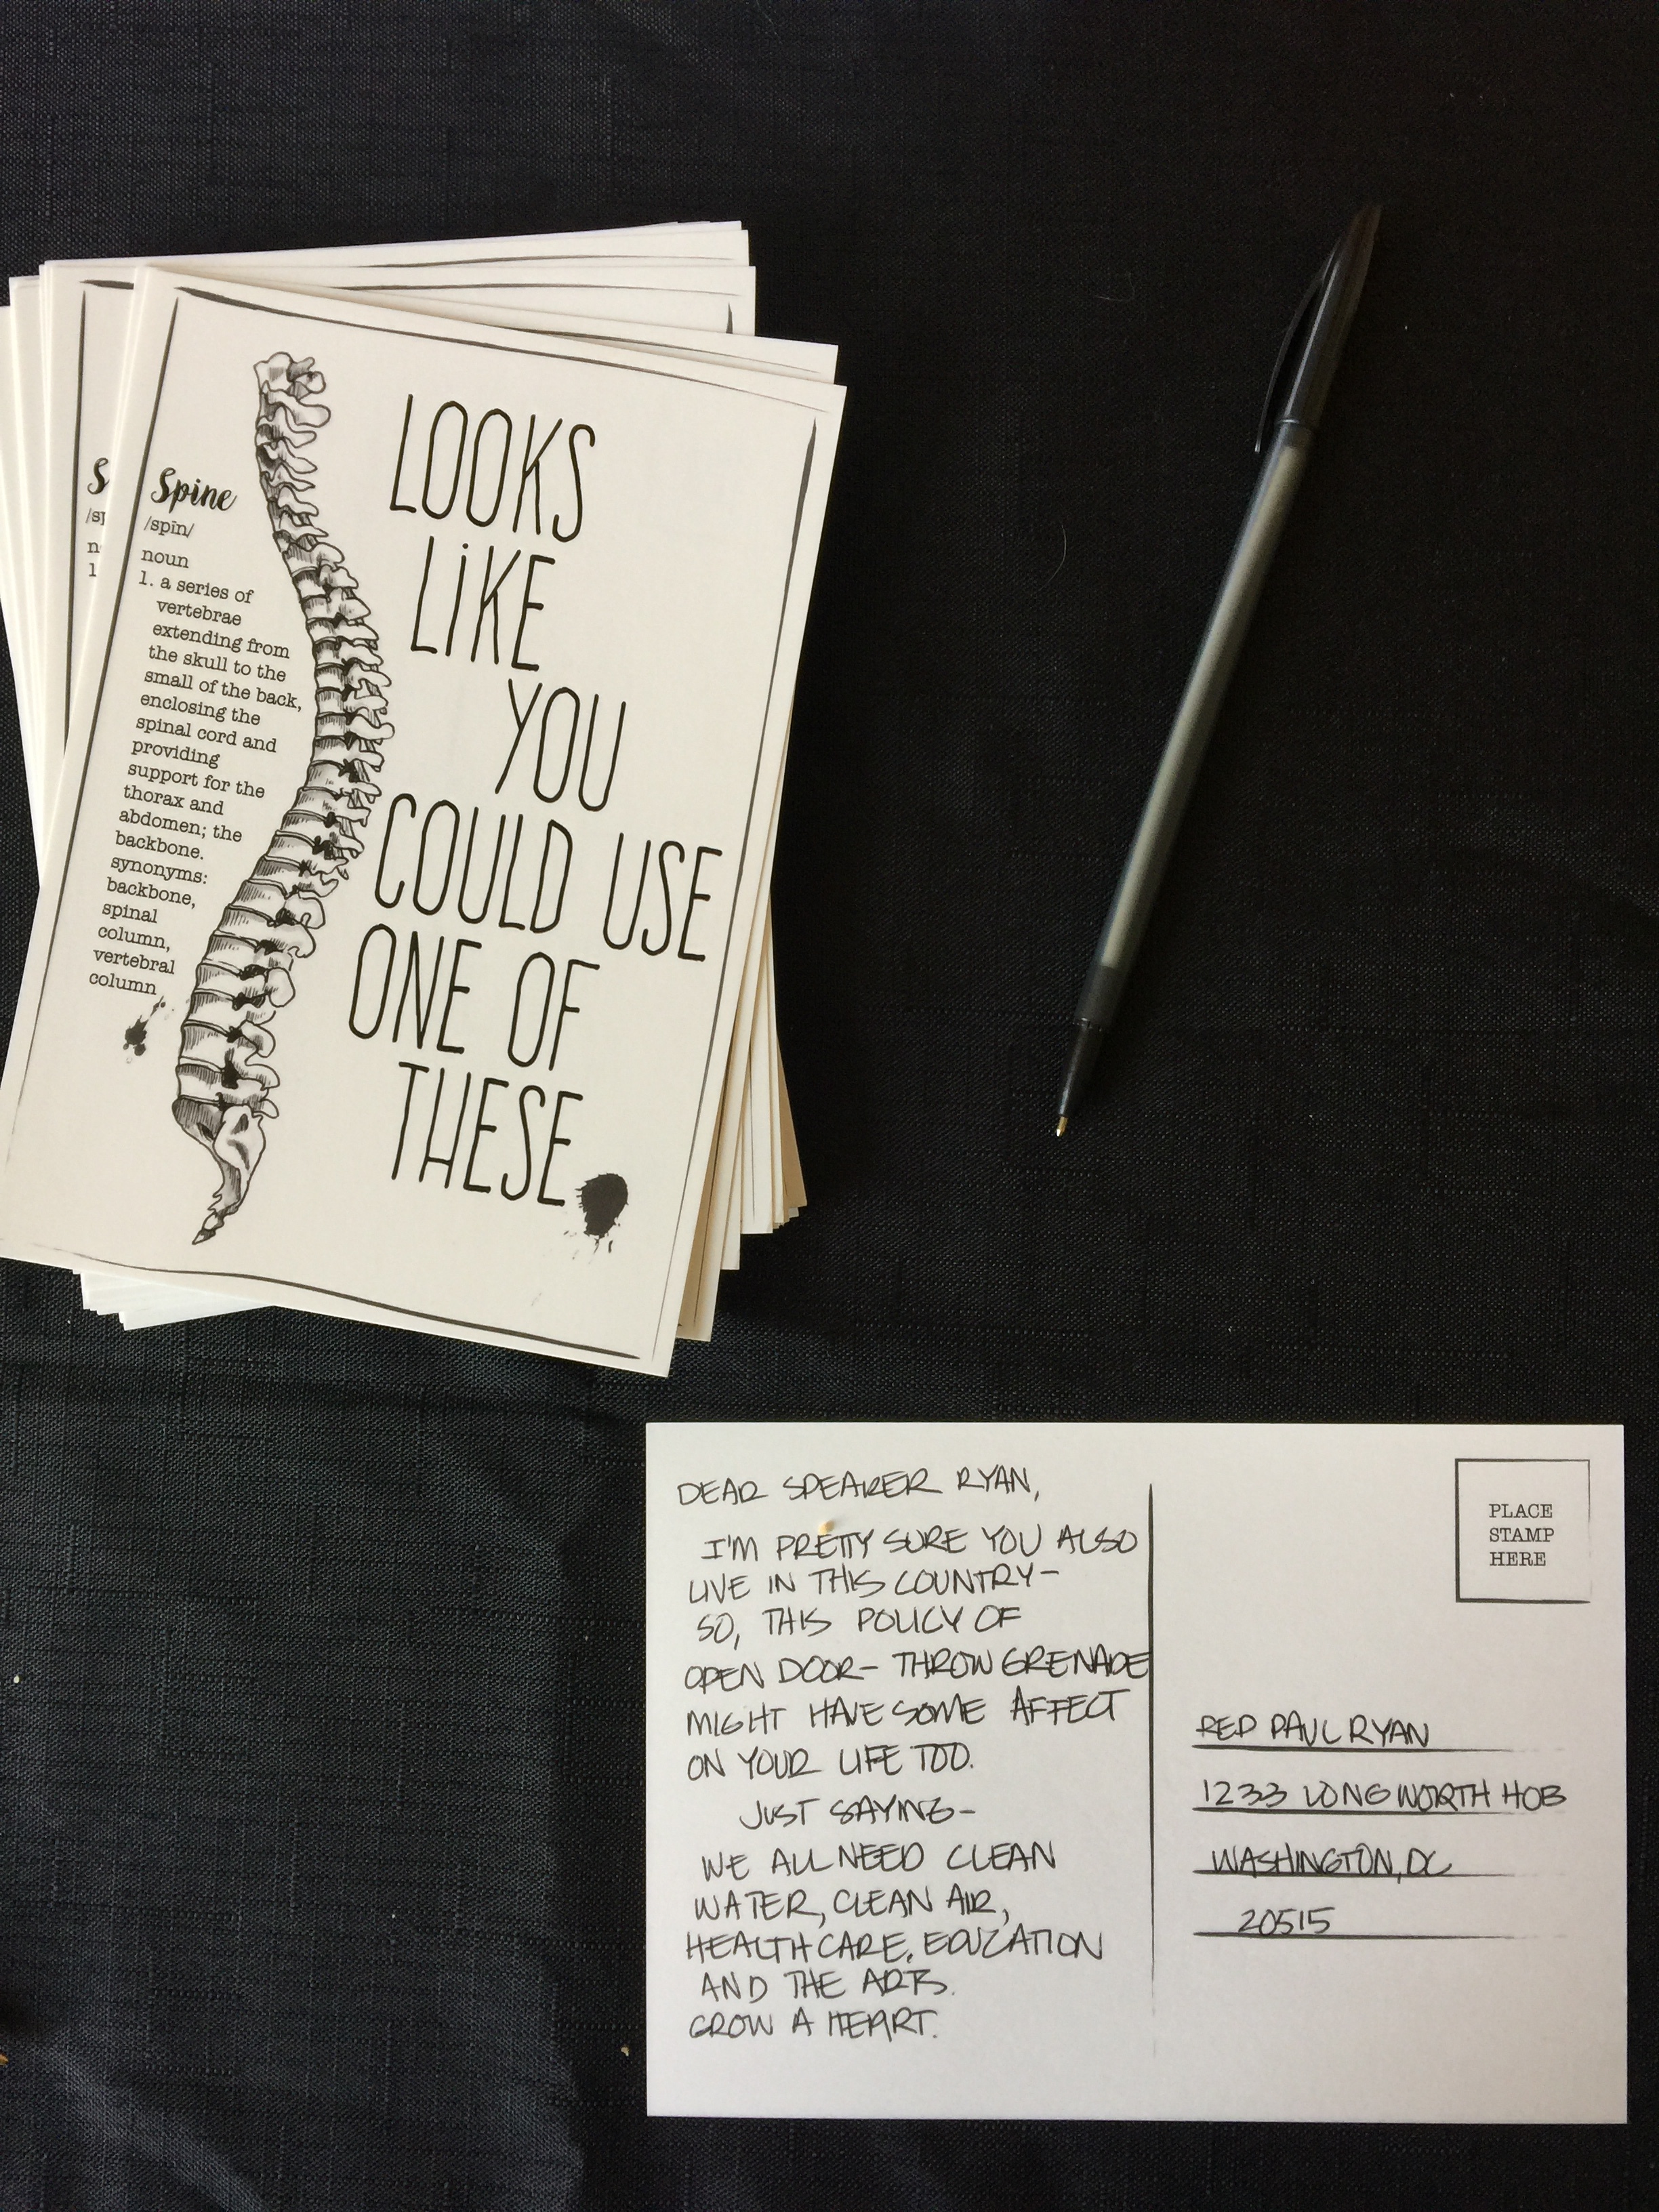 S
/sp
n
1
Spine
/spīn/
noun
1. a series of
vertebrae
extending from
the skull to the
small of the back,
enclosing the
spinal cord and
providing
support for the
thorax and
abdomen; the
backbone.
synonyms:
backbone,
spinal
column,
vertebral
column
LOOKS
LiKE
YOU
COULD USE
ONE OF
THESE.
DEAR SPEAKER RYAN,
I'M PRETTY SURE YOU ALSO
LIVE IN THIS COUNTRY-
SO, THIS POLICY OF
OPEN DOOR- THROW GRENADE
MIGHT HAVE SOME AFFECT
ON YOUR LIFE TOO.
JUST SAYING-
WE ALL NEED CLEAN
WATER, CLEAN AIR,
HEALTHCARE, EDUCATION
AND THE ARTS.
GROW A HEART.
PLACE
STAMP
HERE
REP PAUL RYAN
1233 LONGWORTH HOB
WASHINGTON, DC
20515